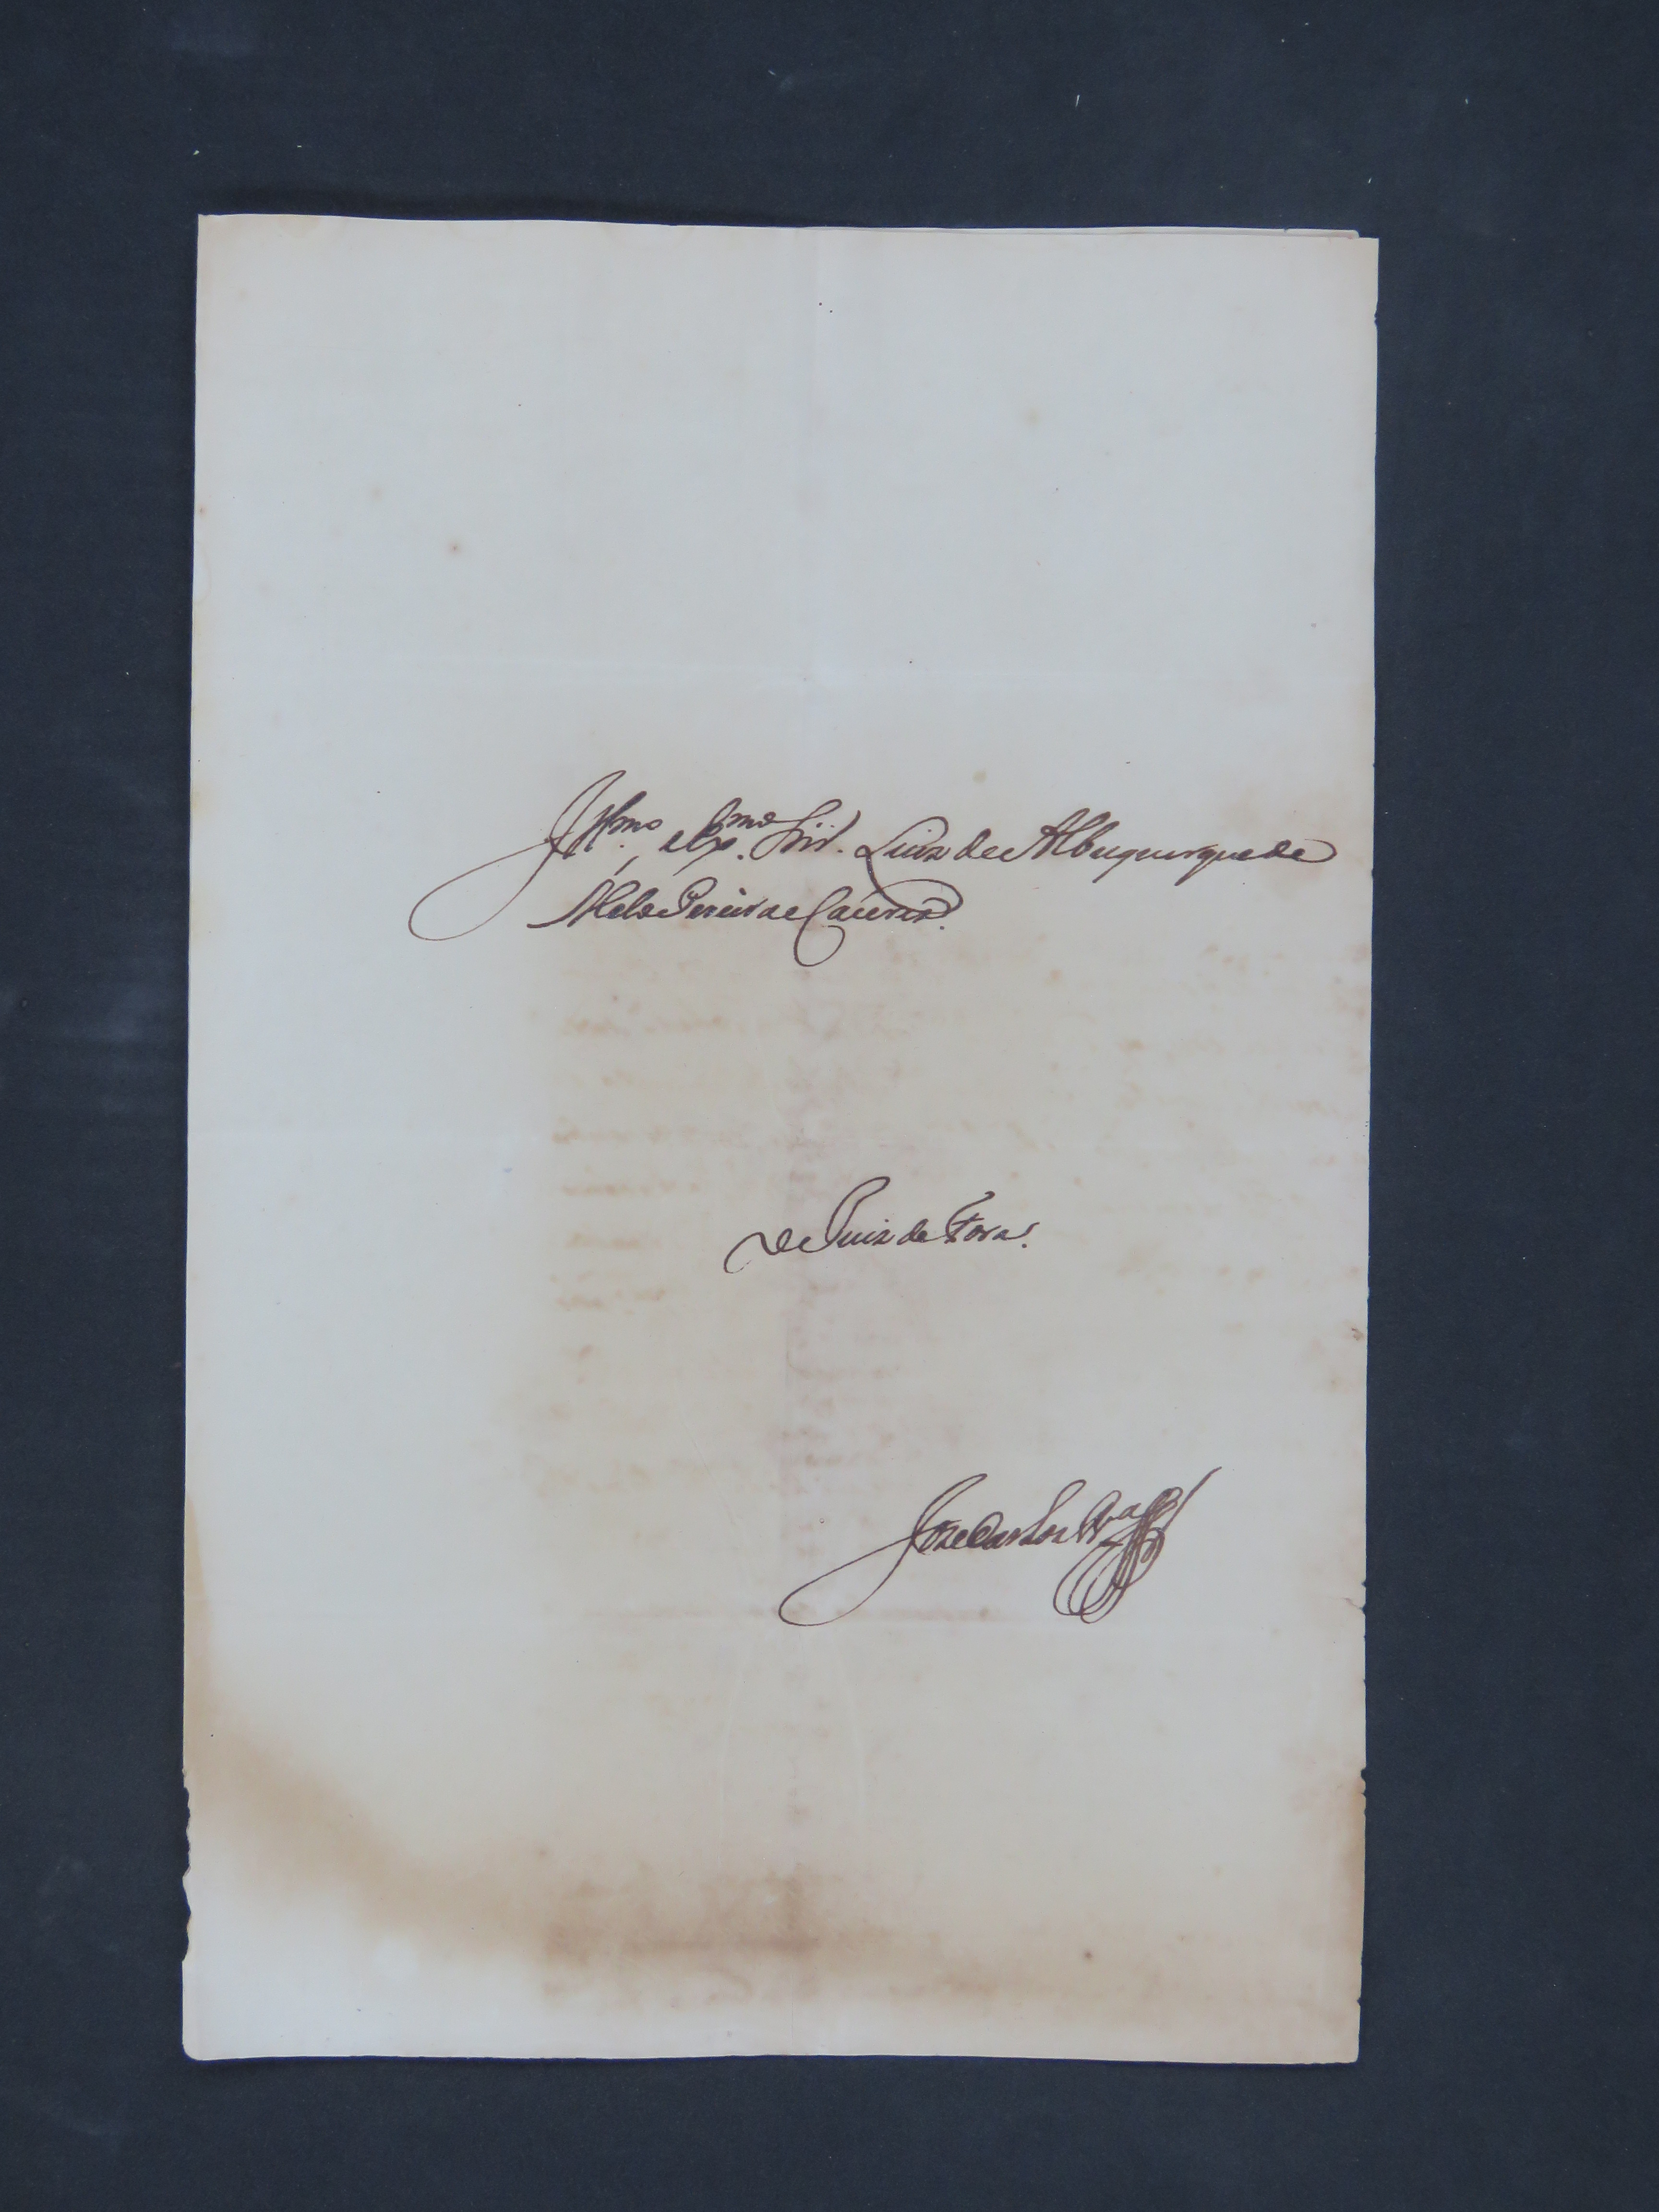 Illmo, e Exmo. Snr. Luiz de Albuquerque de
Melo Pereira e Caceres.
De Juiz de Fora.
Joze Carlos Pra